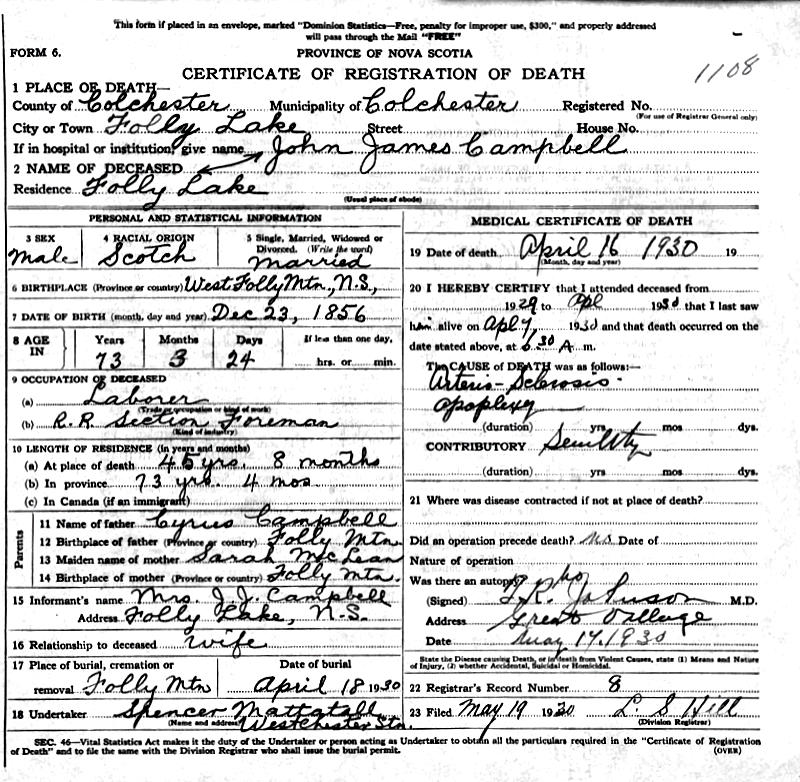 This form if placed in an envelope, marked "Dominion Statistics—Free, penalty for improper use, $300," and properly addressed
will pass through the Mail "FREE"
FORM 6. PROVINCE OF NOVA SCOTIA
CERTIFICATE OF REGISTRATION OF DEATH 1108
1 PLACE OF DEATH—
County of Colchester Municipality of Colchester Registered No.
(For use of Registrar General only)
City or Town Folly Lake Street House No.
If in hospital or institution, give name John James Campbell
2 NAME OF DECEASED
Residence Folly Lake
(Usual place of abode)
PERSONAL AND STATISTICAL INFORMATION
3 SEX 4 RACIAL ORIGIN 5 Single, Married, Widowed or
Divorced. (Write the word)
Male Scotch Married
6 BIRTHPLACE (Province or country) West Folly Mtn., N.S.,
7 DATE OF BIRTH (month, day and year) Dec 23, 1856
8 AGE IN Years Months Days If less than one day,
73 3 24 hrs. or min.
9 OCCUPATION OF DECEASED
(a) Laborer
(Trade or occupation or kind of work)
(b) R.R. Section Foreman
(Kind of industry)
10 LENGTH OF RESIDENCE (in years and months)
(a) At place of death 45 yrs. 8 months
(b) In province 73 yrs. 4 mos.
(c) In Canada (if an immigrant)
Parents
11 Name of father Cyrus Campbell
12 Birthplace of father (Province or country) Folly Mtn.
13 Maiden name of mother Sarah McLean
14 Birthplace of mother (Province or country) Folly Mtn.
15 Informant's name Mrs. J.J. Campbell
Address Folly Lake, N.S.
16 Relationship to deceased wife
17 Place of burial, cremation or Date of burial
removal Folly Mtn April 18 1930
18 Undertaker Spencer Mattatall
(Name and address) Westchester Stn.
MEDICAL CERTIFICATE OF DEATH
19 Date of death April 16 1930 19
(Month, day and year)
20 I HEREBY CERTIFY that I attended deceased from
1929 to Apl 1930 that I last saw
him alive on Apl 7, 1930 and that death occurred on the
date stated above, at 6.30 A. m.
The CAUSE of DEATH was as follows:—
Arterio-Sclerosis.
Apoplexy
(duration) yrs mos dys.
CONTRIBUTORY Senility
(duration) yrs mos dys.
21 Where was disease contracted if not at place of death?
Did an operation precede death? No Date of
Nature of operation
Was there an autopsy? No
(Signed) T.R. Johnson M.D.
Address Great Village
Date May 17, 1930
State the Disease causing Death, or in death from Violent Causes, state (1) Means and Nature
of Injury, (2) whether Accidental, Suicidal or Homicidal.
22 Registrar's Record Number 8
23 Filed May 19 1930 L. S Hill
(Division Registrar)
SEC. 46—Vital Statistics Act makes it the duty of the Undertaker or person acting as Undertaker to obtain all the particulars required in the "Certificate of Registration
of Death" and to file the same with the Division Registrar who shall issue the burial permit. (OVER)